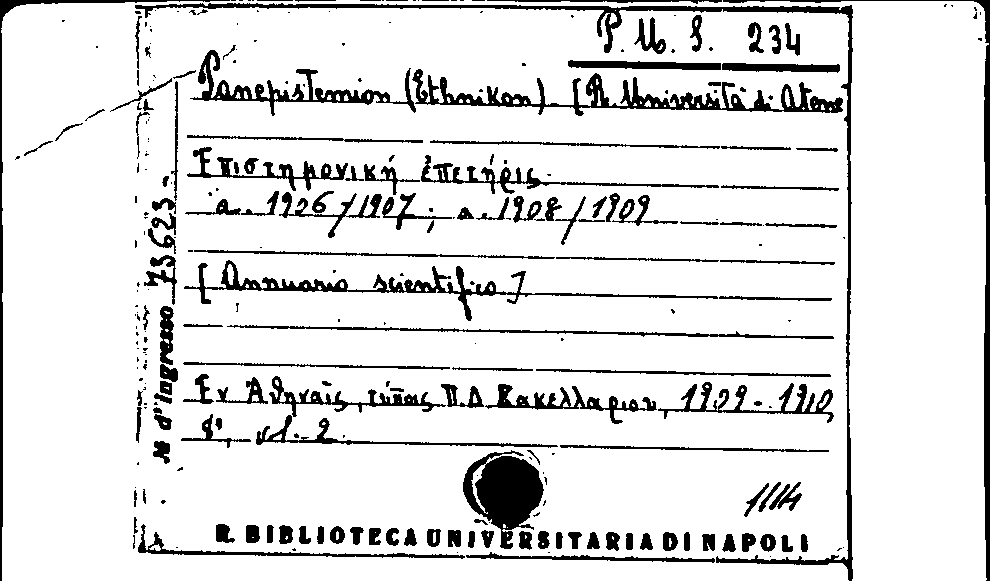 P. U. S. 234
Panepistemion (Ethnikon). [R. Università di Atene]
Επιστημονική ἐπετηρίς.
a. 1926/1907; a. 1908/1909
[Annuario scientifico]
Εν Ἀθηναῖς, τύποις Π.Δ. Σακελλαριου, 1909-1910,
8°, vl. 2.
N. d'Ingresso 73623
1114
R. BIBLIOTECA UNIVERSITARIA DI NAPOLI